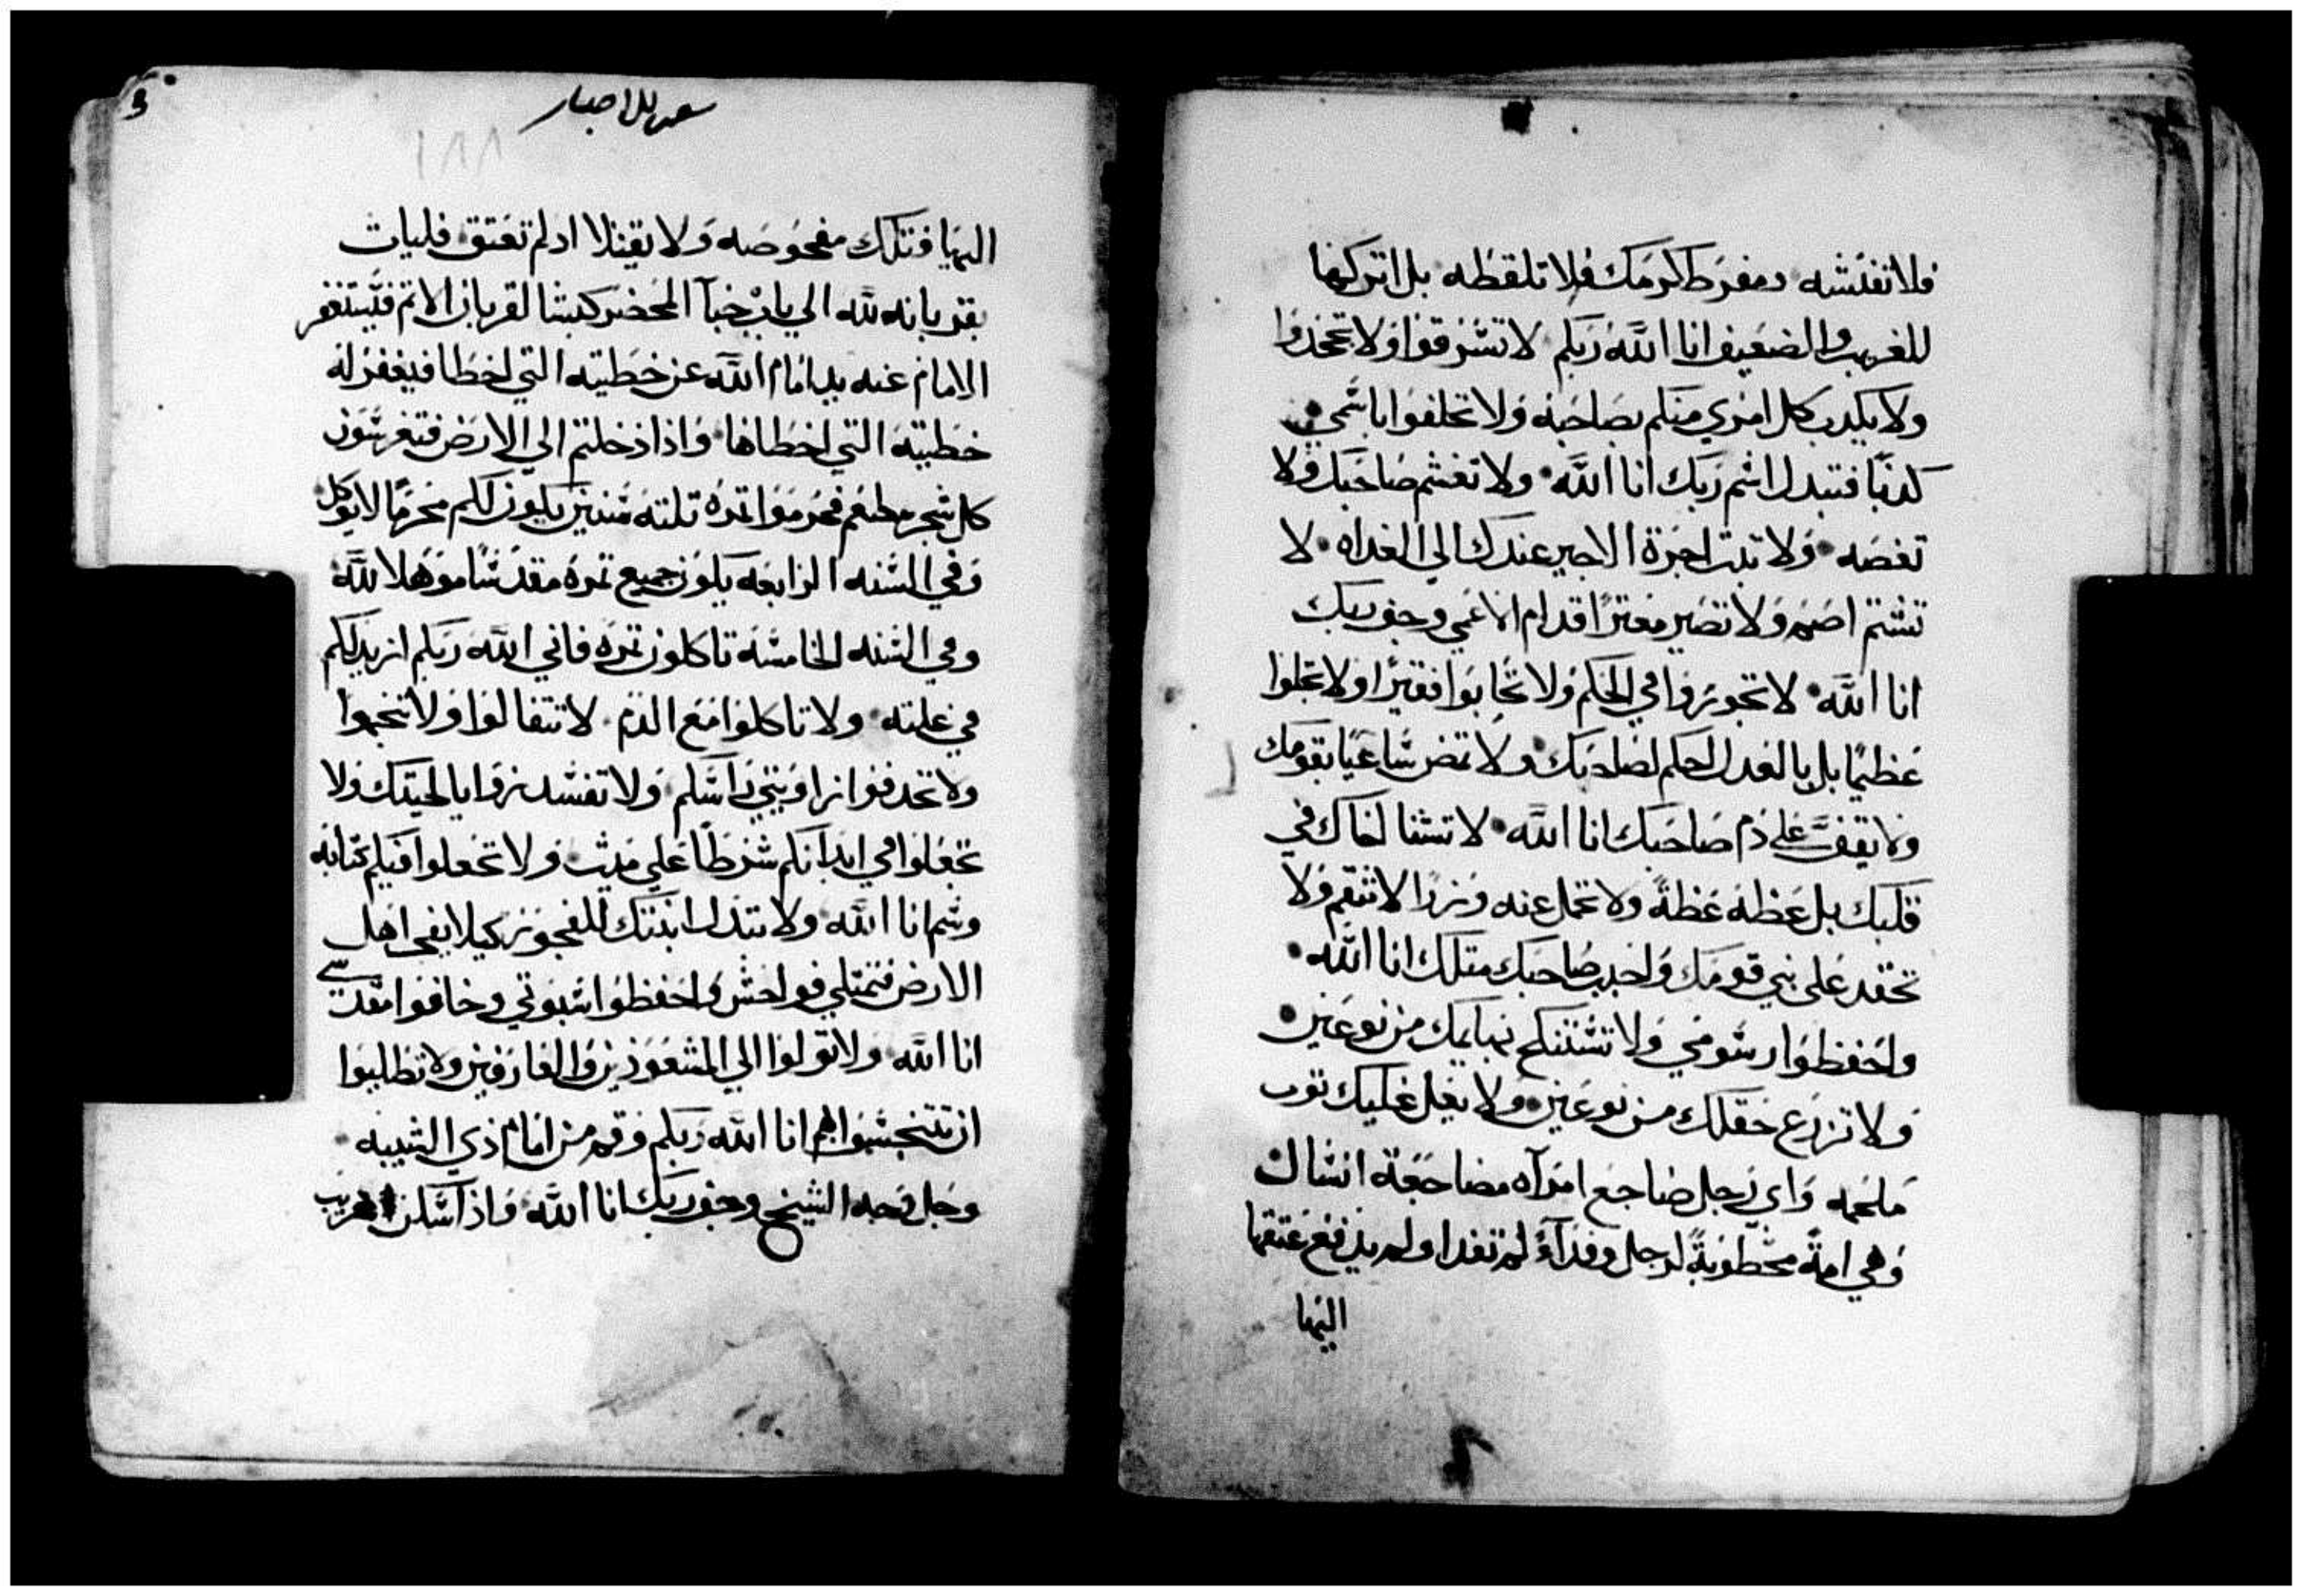 فلا تفتشه ومفرط كرمك فلا تلقطه بل اتركها
للغريب والضعيف انا الله ربكم لا تسرقوا ولا تجحدوا
ولا يكدب كل امري منكم بصاحبه ولا تحلفوا باسمي
كدبًا فتبدل اسم ربك انا الله ولا تغشم صاحبك ولا
تغصه ولا تبت اجرة الاجير عندك الي الغداه لا
تشتم اصم ولا تصير معترًا قدام الاعمي وخف ربك
انا الله لا تجوروا في الحكم ولا تحابوا فقيرًا ولا تجلوا
عظيمًا بل بالعدل احكم لصاحبك ولا تمض ساعيًا بقومك
ولا تقف علي دم صاحبك انا الله لا تشنا اخاك في
قلبك بل عظه عظةً ولا تحمل عنه وزرا لا تنقم ولا
تحقد علي بني قومك واحبب صاحبك متلك انا الله
واحفظوا رسومي ولا تستنكح بهايمك من نوعين
ولا تزرع حقلك من نوعين ولا يعل عليك توب
ملحمه واي رجل ضاجع امراه مضاجعة انسان
وهي امةً مخطوبةً لرجل وفدآءً لم تفدا ولم يدفع عتقها
اليها
سفر الاحبار
١٨٨
اليها فتلك مفحوصه ولا يقتلا اد لم تعتق فليات
بقربانه لله الي باب خبآ المحضر كبشا لقربان الاتم فيستغفر
الامام عنه بين امام الله عن خطيته التي اخطا فيغفر له
خطيته التي اخطاها واذا دخلتم الي الارض فتغرسون
كل شجر مطعم فحرموا تمره تلته سنين يكون لكم محرمًا لا يوكل
وفي السنه الرابعه يكون جميع تمره مقدسًا موهلا لله
وفي السنه الخامسه تاكلون تمره فاني الله ربكم ازيد لكم
في غلته ولا تاكلوا مع الدم لا تتفالوا ولا تنجموا
ولا تحدفوا زاويتي راسكم ولا تفسد زوايا لحيتك ولا
تجعلوا في ابدانكم شرطًا علي ميت ولا تجعلوا فيكم كتابه
وشم انا الله ولا تبتدل ابنتك للفجور كيلا يفجر اهل
الارض فتمتلي فواحش واحفظوا سبوتي وخافوا مقدسي
انا الله ولا تولوا الي المشعوذين والعارفين ولا تطلبوا
ان تتنجسوا بهم انا الله ربكم وقم من امام ذي الشيبه
وجل وجه الشيخ وخف ربك انا الله واذا سكن غريب